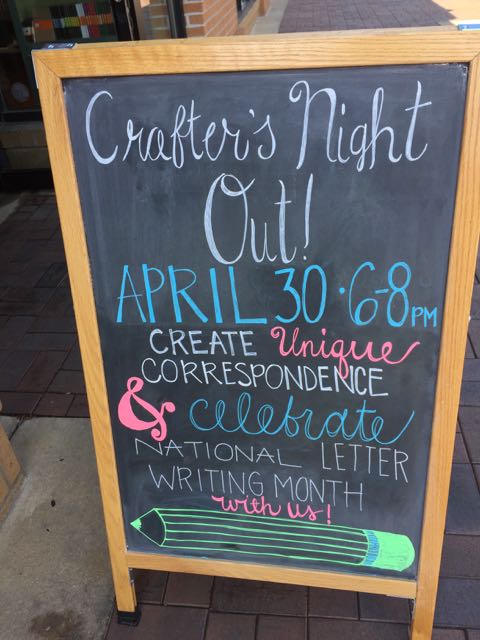 Crafter's Night
Out!
APRIL 30 · 6-8PM
CREATE Unique
CORRESPONDENCE
& celebrate
NATIONAL LETTER
WRITING MONTH
with us!